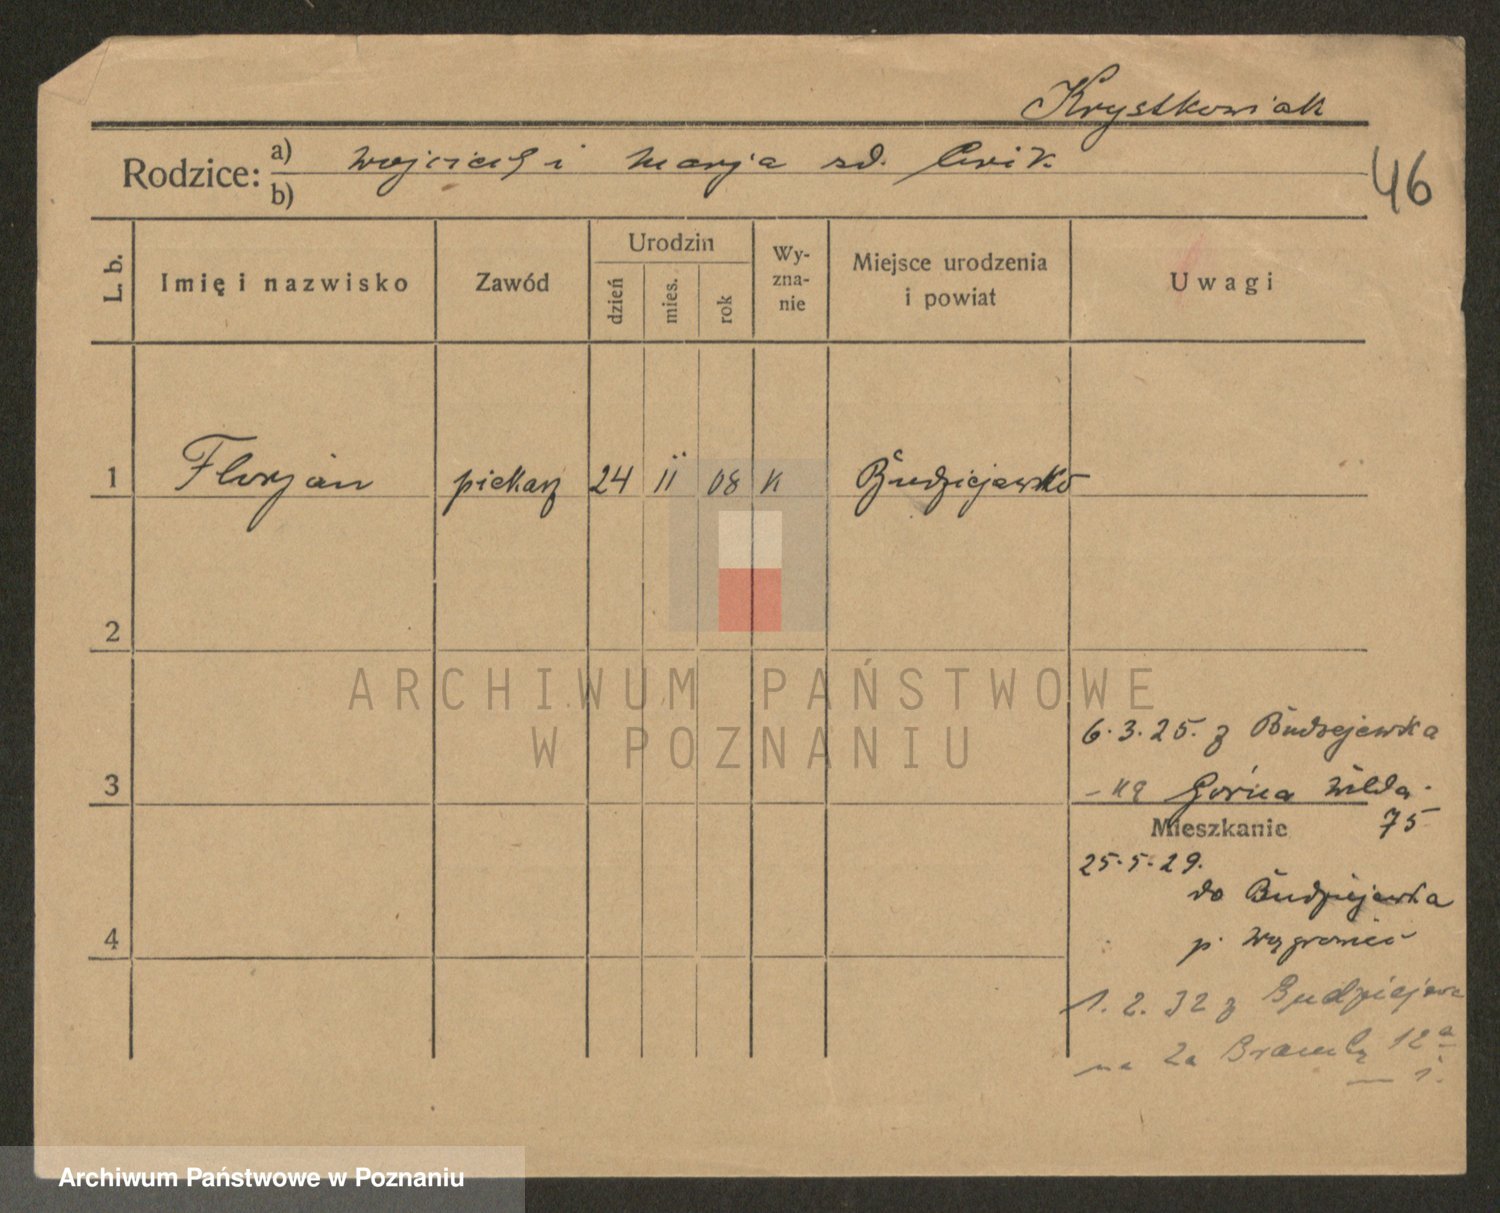 Krystkowiak
Rodzice: a) Wojciech i Marja zd. Ćwik
b)
46
L. b.
Imię i nazwisko
Zawód
Urodzin
dzień
mies.
rok
Wy-
zna-
nie
Miejsce urodzenia
i powiat
Uwagi
1 Florjan piekarz 24 II 08 K Budziejewko
2
ARCHIWUM PAŃSTWOWE
W POZNANIU
3
6.3.25. z Budziejewka
- na Górna Wilda
75
Mieszkanie
25.5.29.
do Budziejewka
p. Wągrowiec
4
1.2.32 z Budziejewa
na Za Bramką 12a
Archiwum Państwowe w Poznaniu